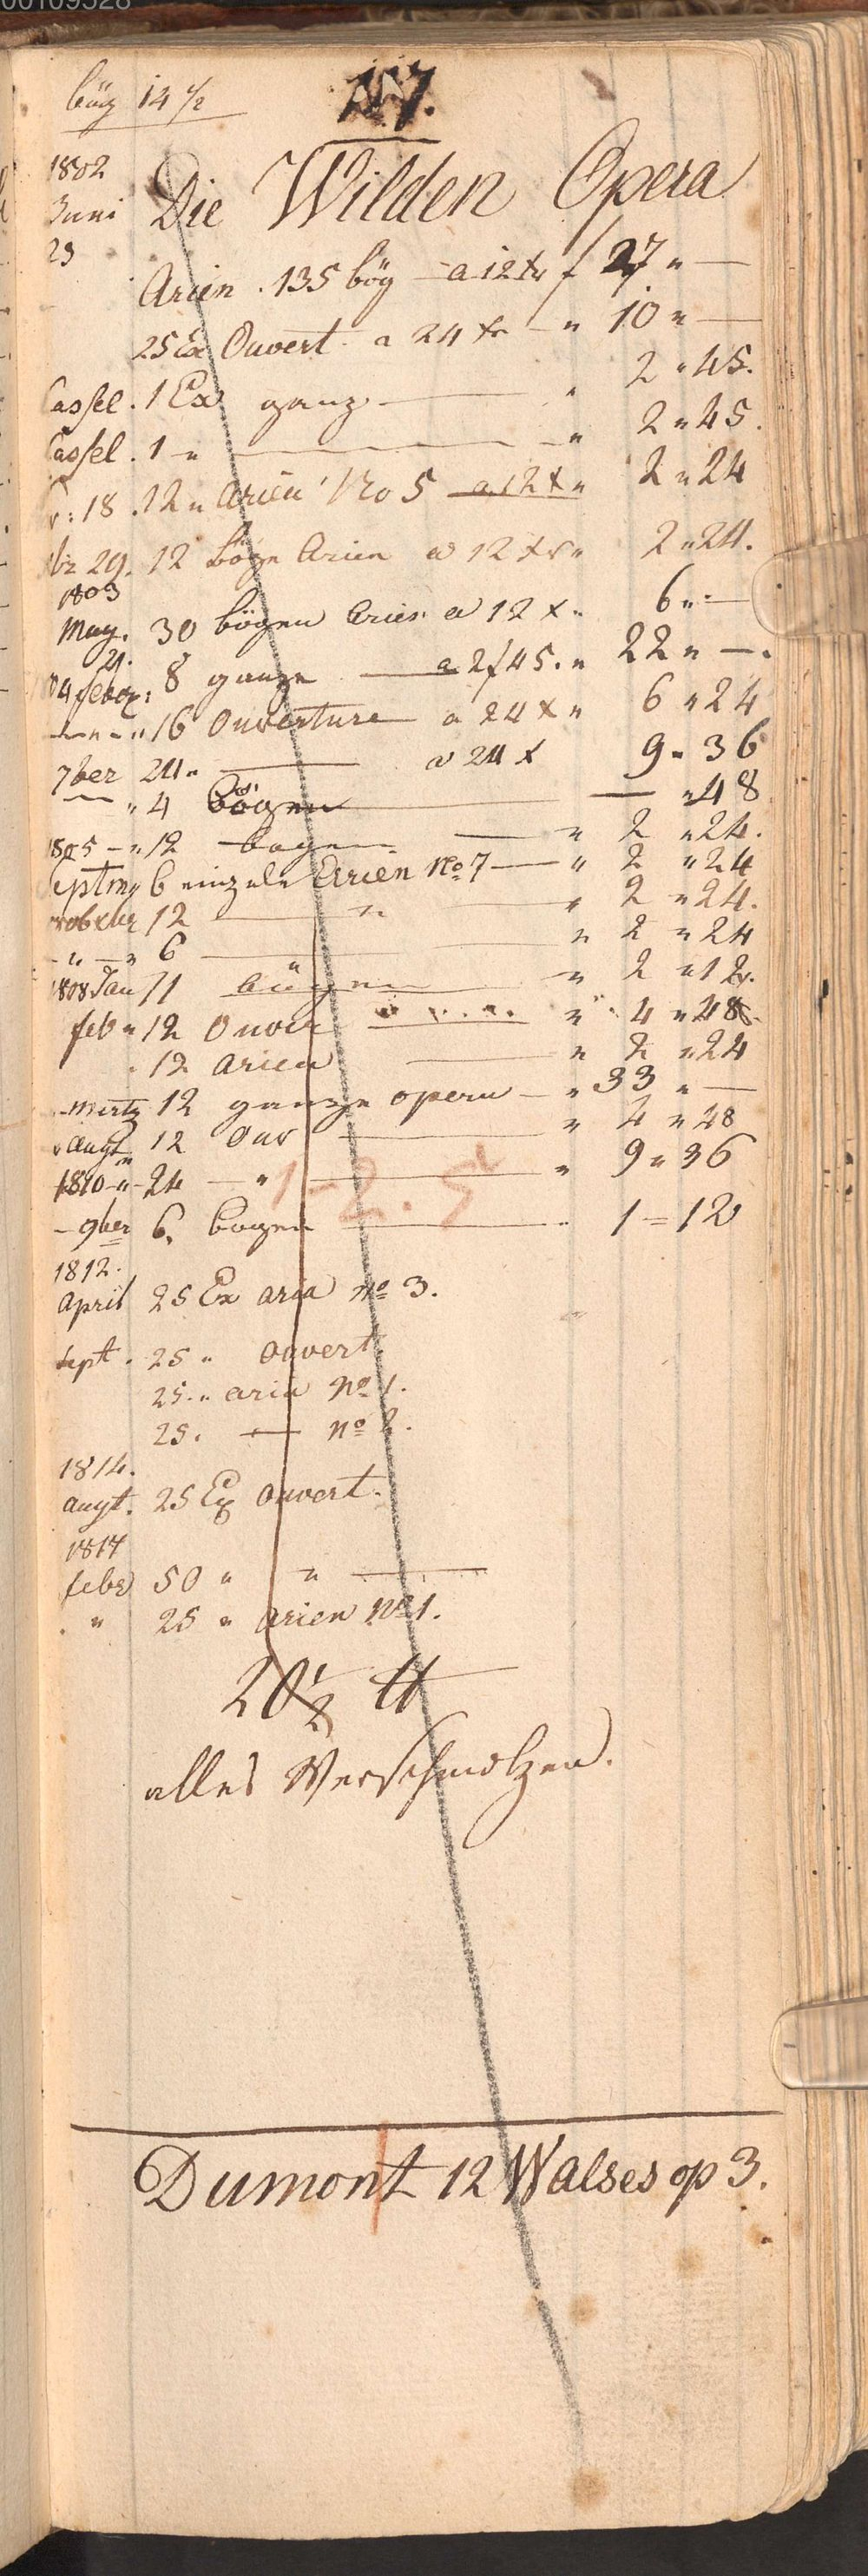 00109528
bög 14 1/2
117.
1802
Juni
23
Die Wilden Opera
Arien . 135 bög a 12 xr f 27 " —
25 Ex Ouvert. a 24 xr — " 10 " —
Cassel . 1 Ex ganz — " 2 " 45.
Cassel . 1 " — " 2 " 45.
18 . 12 " Arien No 5 a 12 x " 2 " 24
br 29. 12 böge Arien a 12 xr " 2 " 24.
1803
May. 30 bögen Arien a 12 x " 6 " —
04 febr: 8 ganze — a 2f 45. " 22 " —.
— " — " 16 Ouverture a 24 x " 6 " 24
7ber 24 " — a 24 x 9 " 36
— " 4 bögen — — " 48
1805 — " 12 bogen — " 2 " 24.
Septm " 6 einzele Arien No 7 — " 2 " 24
12 — " — " 2 " 24.
- " — " 6 — " 2 " 24
1808 Jan 11 bögen — " 2 " 12.
feb " 12 Ouver — " 4 " 48
" 12 Arien — " 2 " 24
mertz 12 ganze opern — " 33 " —
augt 12 Ouv — " 4 " 48
1810 - " - 24 — " — " 9 " 36
1-2. 5
- 9ber 6. bogen — " 1 = 12
1812.
April 25 Ex aria No 3.
Sept . 25 " Ouvert.
25. " aria No 1.
25. — No 2.
1814.
augt. 25 Ex Ouvert.
1817
febr 50 " " —
" 25 " Arien No 1.
20 1/2 ℔
alles Verschmolzen.
Dumont 12 Walses op 3.